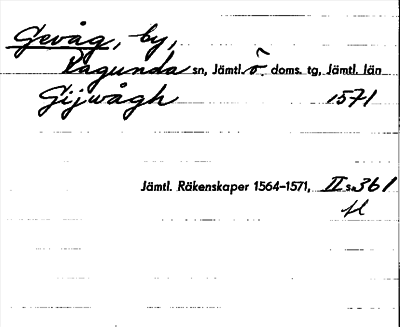 Gevåg, by,
Ragunda sn, Jämtl. ö. doms. tg, Jämtl. län
Gijwågh 1571
Jämtl. Räkenskaper 1564–1571, II s. 361